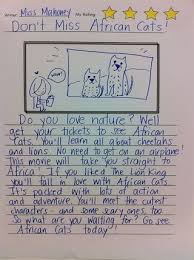 Writer Miss Mahoney My Rating
Don't Miss African Cats!
Do you love nature? Well
get your tickets to see African
Cats. You'll learn all about cheetahs
and lions. No need to get on an airplane!
This movie will take you straight to
Africa! If you liked The Lion King
you'll fall in love with African Cats.
It's packed with lots of action
and adventure. You'll meet the cutest
characters - and some scary ones, too.
So what are you waiting for? Go see
African Cats today!